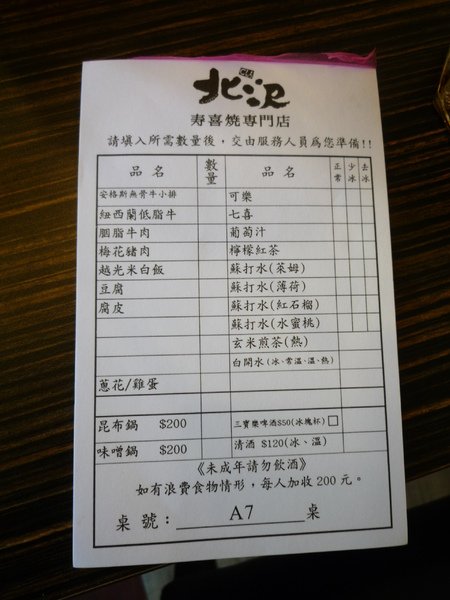 北澤
CLA
寿喜燒專門店
請填入所需數量後，交由服務人員為您準備!!
品名 數量 品名 正常 少冰 去冰
安格斯無骨牛小排 可樂
紐西蘭低脂牛 七喜
胭脂牛肉 葡萄汁
梅花豬肉 檸檬紅茶
越光米白飯 蘇打水(萊姆)
豆腐 蘇打水(薄荷)
腐皮 蘇打水(紅石榴)
蘇打水(水蜜桃)
玄米煎茶(熱)
白開水(冰、常溫、溫、熱)
蔥花/雞蛋
昆布鍋 $200 三寶樂啤酒$50(冰塊杯)□
味噌鍋 $200 清酒 $120(冰、溫)
《未成年請勿飲酒》
如有浪費食物情形，每人加收200元。
桌號：A7桌